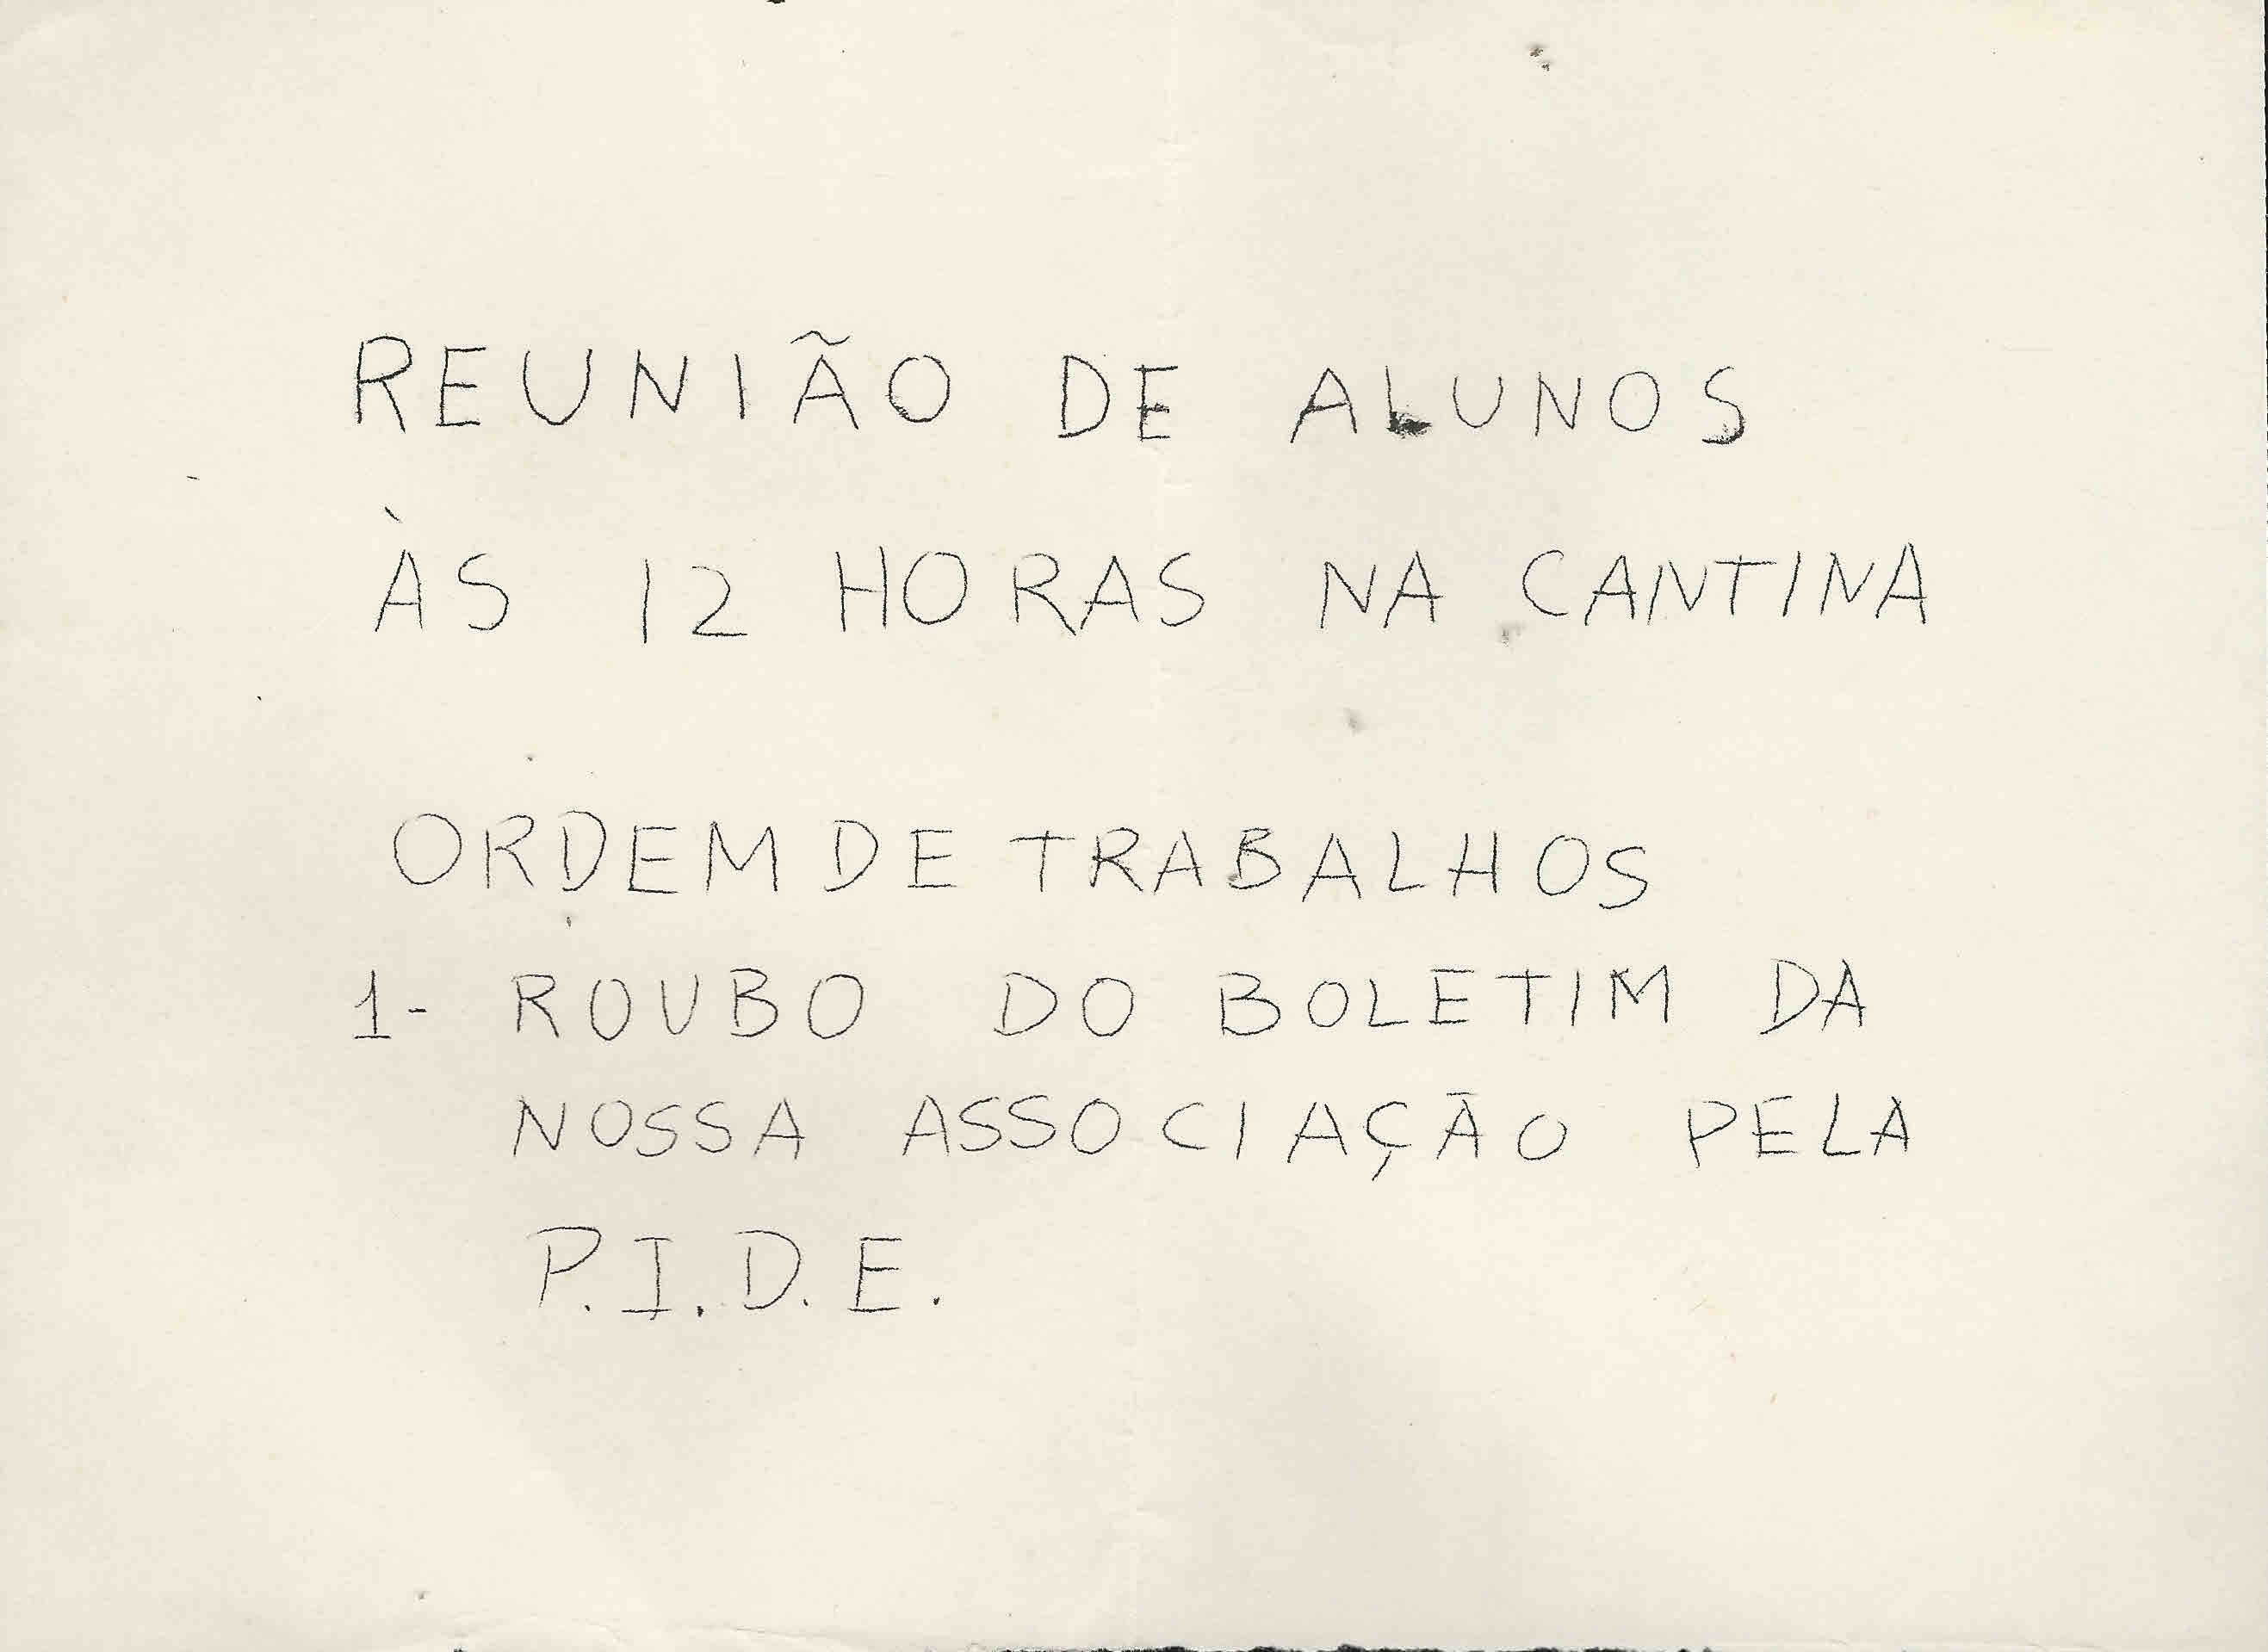 REUNIÃO DE ALUNOS
ÀS 12 HORAS NA CANTINA
ORDEM DE TRABALHOS
1- ROUBO DO BOLETIM DA
NOSSA ASSOCIAÇÃO PELA
P.I.D.E.